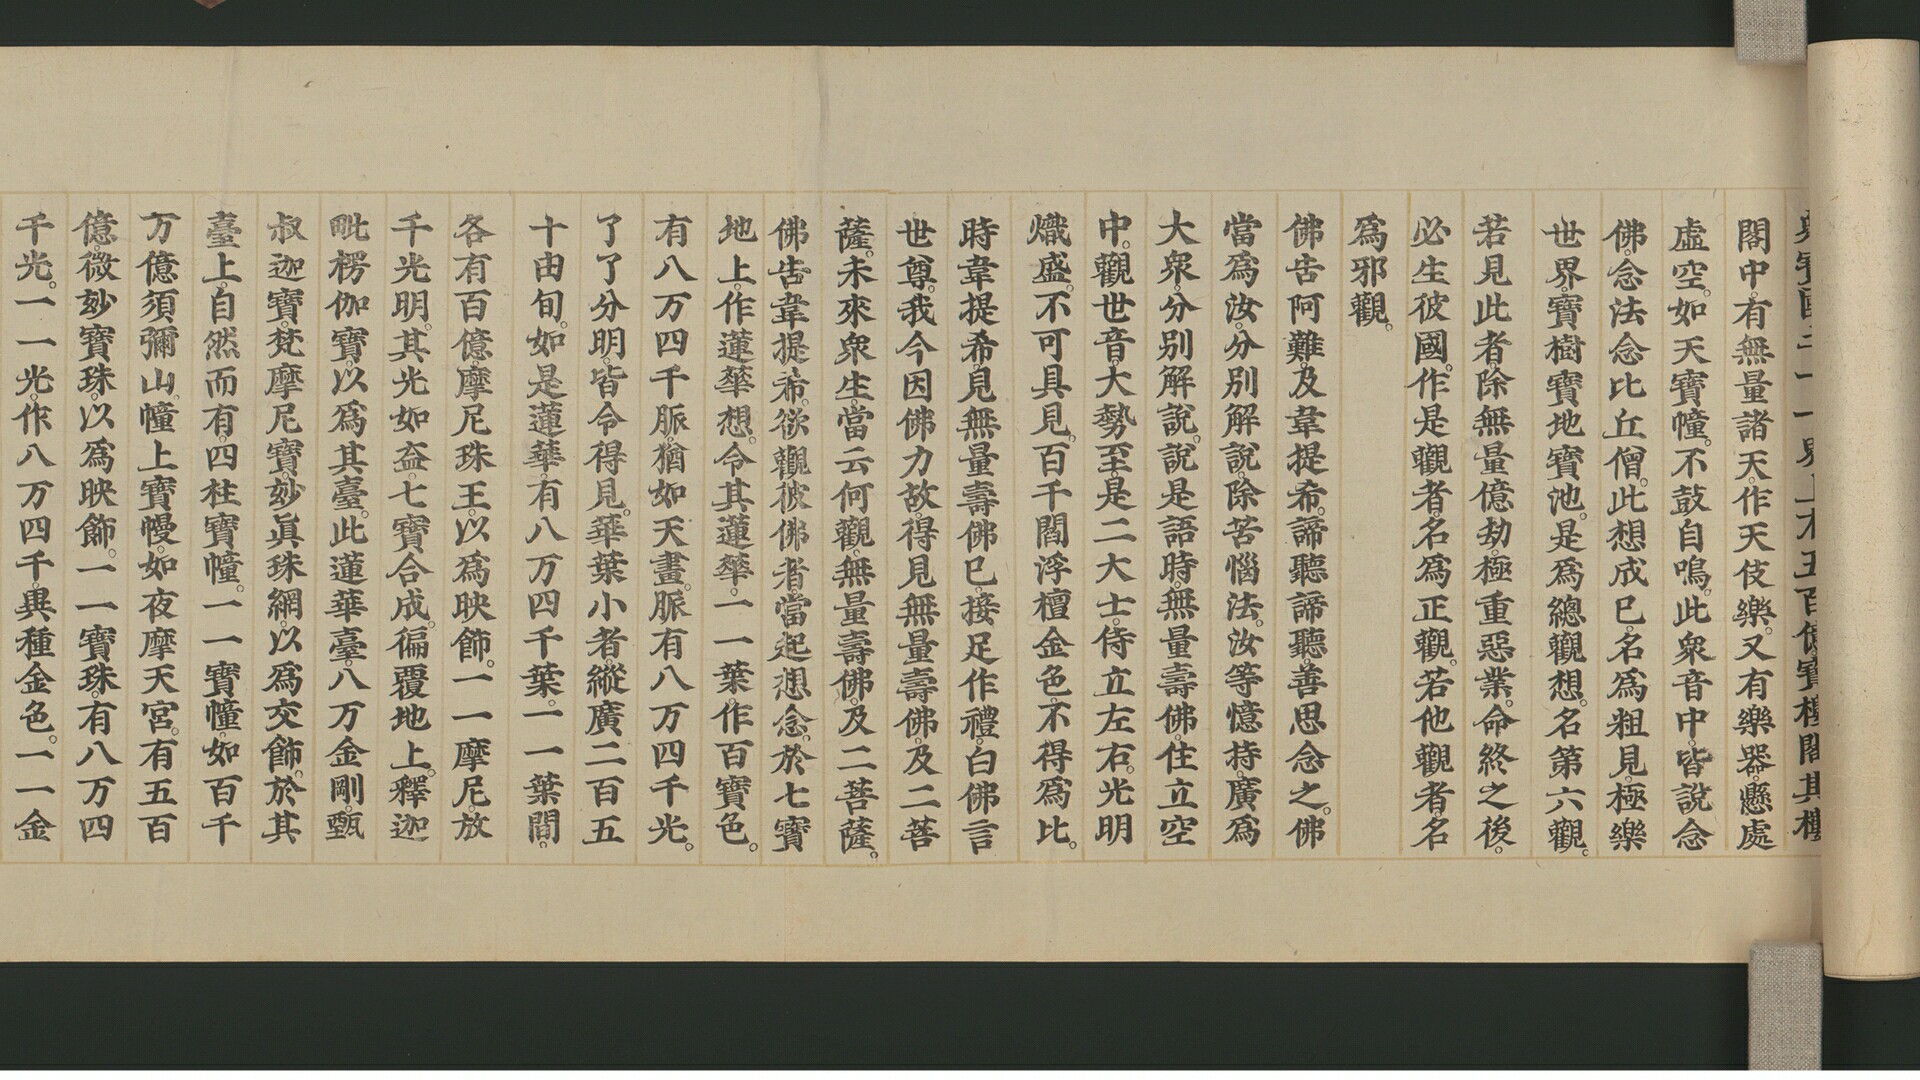 衆寶國土一一界上有五百億寶樓閣其樓
閣中。有無量諸天。作天伎樂。又有樂器。懸處
虛空。如天寶幢。不鼓自鳴。此衆音中。皆說念
佛。念法念比丘僧。此想成已。名爲粗見。極樂
世界寶樹寶地寶池。是爲總觀想。名第六觀。
若見此者。除無量億劫。極重惡業。命終之後。
必生彼國。作是觀者。名爲正觀。若他觀者。名
爲邪觀。
佛告阿難。及韋提希。諦聽諦聽。善思念之。佛
當爲汝。分別解說。除苦惱法。汝等憶持。廣爲
大衆。分別解說。說是語時。無量壽佛。住立空
中。觀世音。大勢至。是二大士。侍立左右。光明
熾盛。不可具見。百千閻浮檀金色。不得爲比。
時韋提希。見無量壽佛已。接足作禮。白佛言
世尊。我今因佛力故。得見無量壽佛。及二菩
薩。未來衆生。當云何觀。無量壽佛。及二菩薩。
佛告韋提希。欲觀彼佛者。當起想念。於七寶
地上。作蓮華想。令其蓮華。一一葉。作百寶色。
有八万四千脈。猶如天畫。脈有八万四千光。
了了分明。皆令得見。華葉小者。縱廣二百五
十由旬。如是蓮華。有八万四千葉。一一葉間。
各有百億。摩尼珠王。以爲映飾。一一摩尼。放
千光明。其光如盖。七寶合成。徧覆地上。釋迦
毗楞伽寶。以爲其臺。此蓮華臺。八万金剛。甄
叔迦寶。梵摩尼寶。妙眞珠網。以爲交飾。於其
臺上。自然而有。四柱寶幢。一一寶幢。如百千
万億須彌山。幢上寶幔。如夜摩天宮。有五百
億。微妙寶珠。以爲映飾。一一寶珠。有八万四
千光。一一光。作八万四千異種金色。一一金